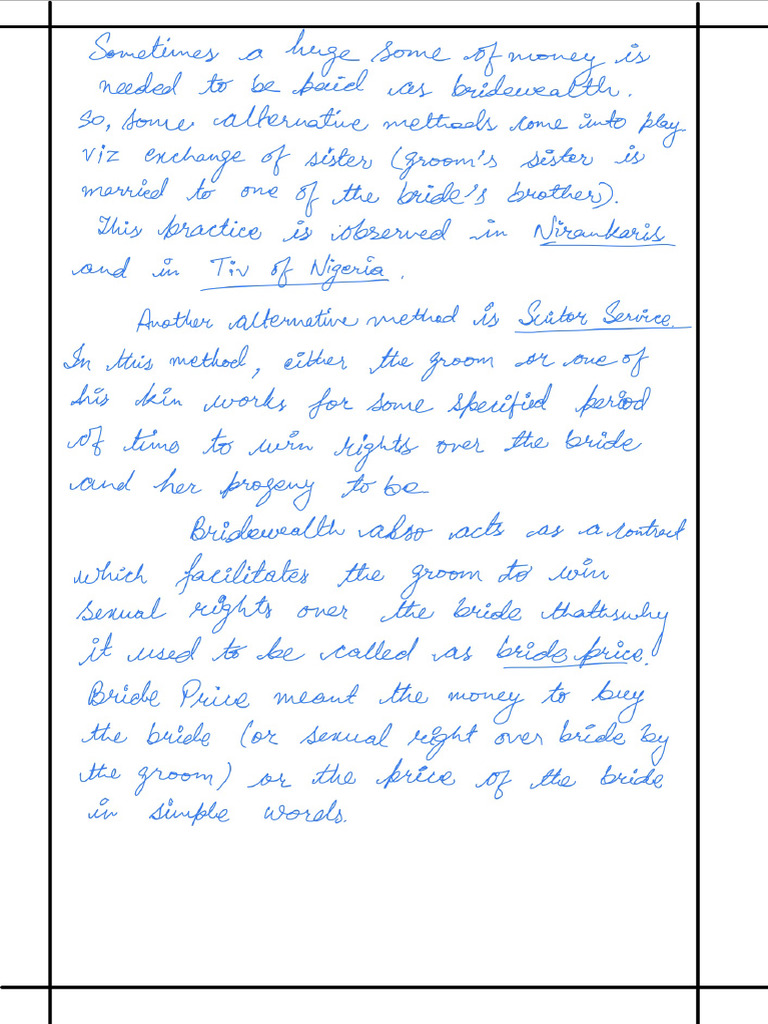 Sometimes a huge some of money is
needed to be paid as bridewealth.
So, some alternative methods come into play
viz exchange of sister (groom's sister is
married to one of the bride's brother).
This practice is observed in Nirankaris
and in Tiv of Nigeria.
Another alternative method is Suitor Service.
In this method, either the groom or one of
his kin works for some specified period
of time to win rights over the bride
and her progeny to be
Bridewealth also acts as a contract
which facilitates the groom to win
sexual rights over the bride thathswhy
it used to be called as bride price.
Bride Price meant the money to buy
the bride (or sexual right over bride by
the groom) or the price of the bride
in simple words.